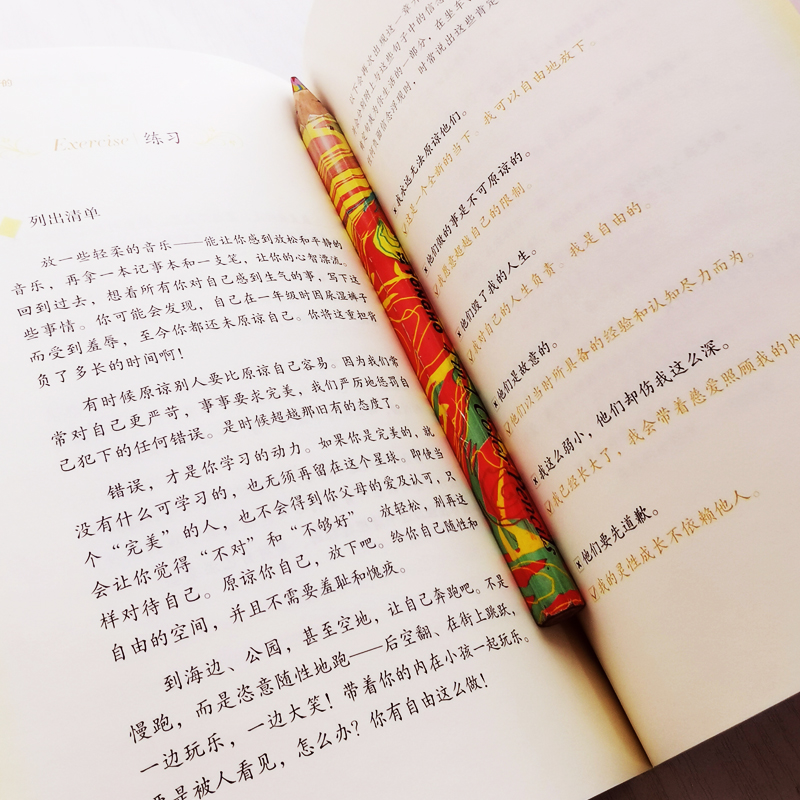 Exercise 练习
列出清单
放一些轻柔的音乐——能让你感到放松和平静的
音乐，再拿一本记事本和一支笔，让你的心智漂流，
回到过去，想着所有你对自己感到生气的事，写下这
些事情。你可能会发现，自己在一年级时因尿湿裤子
而受到羞辱，至今你都还未原谅自己。你将这重担背
负了多长的时间啊！
有时候原谅别人要比原谅自己容易。因为我们常
常对自己更严苛，事事要求完美，我们严厉地惩罚自
己犯下的任何错误。是时候超越那旧有的态度了。
错误，才是你学习的动力。如果你是完美的，就
没有什么可学习的，也无须再留在这个星球。即使当
个“完美”的人，也不会得到你父母的爱及认可，只
会让你觉得“不对”和“不够好”。放轻松，别再这
样对待自己。原谅你自己，放下吧。给你自己随性和
自由的空间，并且不需要羞耻和愧疚。
到海边、公园，甚至空地，让自己奔跑吧。不是
慢跑，而是恣意随性地跑——后空翻、在街上跳跃，
一边玩乐，一边大笑！带着你的内在小孩一起玩乐。
要是被人看见，怎么办？你有自由这么做！
以下会再次出现这一章
成为你生活的一部分，在坐车
时常说出这些肯定
我永远无法原谅他们。
这是一个全新的当下。我可以自由地放下。
他们做的事是不可原谅的。
我愿意超越自己的限制。
他们毁了我的人生。
我对自己的人生负责。我是自由的。
他们是故意的。
他们以当时所具备的经验和认知尽力而为。
我这么弱小，他们却伤我这么深。
我已经长大了，我会带着慈爱照顾我的内
他们要先道歉。
我的灵性成长不依赖他人。